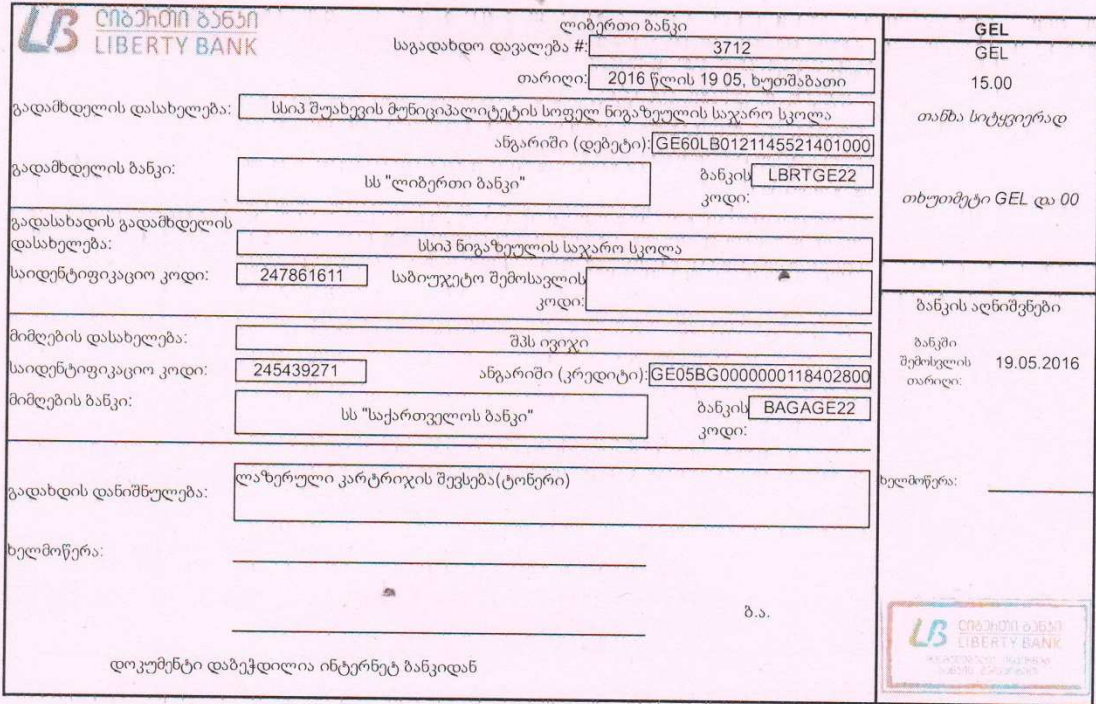 ლიბერთი ბანკი
LIBERTY BANK
ლიბერთი ბანკი
საგადახდო დავალება #: 3712
თარიღი: 2016 წლის 19 05, ხუთშაბათი
გადამხდელის დასახელება: სსიპ შუახევის მუნიციპალიტეტის სოფელ ნიგაზეულის საჯარო სკოლა
ანგარიში (დებეტი): GE60LB0121145521401000
გადამხდელის ბანკი: სს "ლიბერთი ბანკი" ბანკის კოდი: LBRTGE22
გადასახადის გადამხდელის
დასახელება: სსიპ ნიგაზეულის საჯარო სკოლა
საიდენტიფიკაციო კოდი: 247861611 საბიუჯეტო შემოსავლის
კოდი:
მიმღების დასახელება: შპს ივიჯი
საიდენტიფიკაციო კოდი: 245439271 ანგარიში (კრედიტი): GE05BG0000000118402800
მიმღების ბანკი: სს "საქართველოს ბანკი" ბანკის კოდი: BAGAGE22
გადახდის დანიშნულება: ლაზერული კარტრიჯის შევსება(ტონერი)
ხელმოწერა:
ბ.ა.
დოკუმენტი დაბეჭდილია ინტერნეტ ბანკიდან
GEL
GEL
15.00
თანხა სიტყვიერად
თხუთმეტი GEL და 00
ბანკის აღნიშვნები
ბანკში
შემოსვლის 19.05.2016
თარიღი:
ხელმოწერა:
ლიბერთი ბანკი
LIBERTY BANK